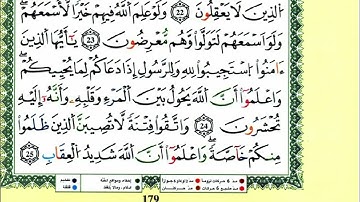 الَّذِينَ لَا يَعْقِلُونَ ﴿22﴾ وَلَوْ عَلِمَ اللَّهُ فِيهِمْ خَيْرًا لَّأَسْمَعَهُمْ ۖ
وَلَوْ أَسْمَعَهُمْ لَتَوَلَّوا وَّهُم مُّعْرِضُونَ ﴿23﴾ يَا أَيُّهَا الَّذِينَ
ءَامَنُوا اسْتَجِيبُوا لِلَّهِ وَلِلرَّسُولِ إِذَا دَعَاكُمْ لِمَا يُحْيِيكُمْ ۖ
وَاعْلَمُوا أَنَّ اللَّهَ يَحُولُ بَيْنَ الْمَرْءِ وَقَلْبِهِ وَأَنَّهُ إِلَيْهِ
تُحْشَرُونَ ﴿24﴾ وَاتَّقُوا فِتْنَةً لَّا تُصِيبَنَّ الَّذِينَ ظَلَمُوا
مِنكُمْ خَاصَّةً ۖ وَاعْلَمُوا أَنَّ اللَّهَ شَدِيدُ الْعِقَابِ ﴿25﴾
179